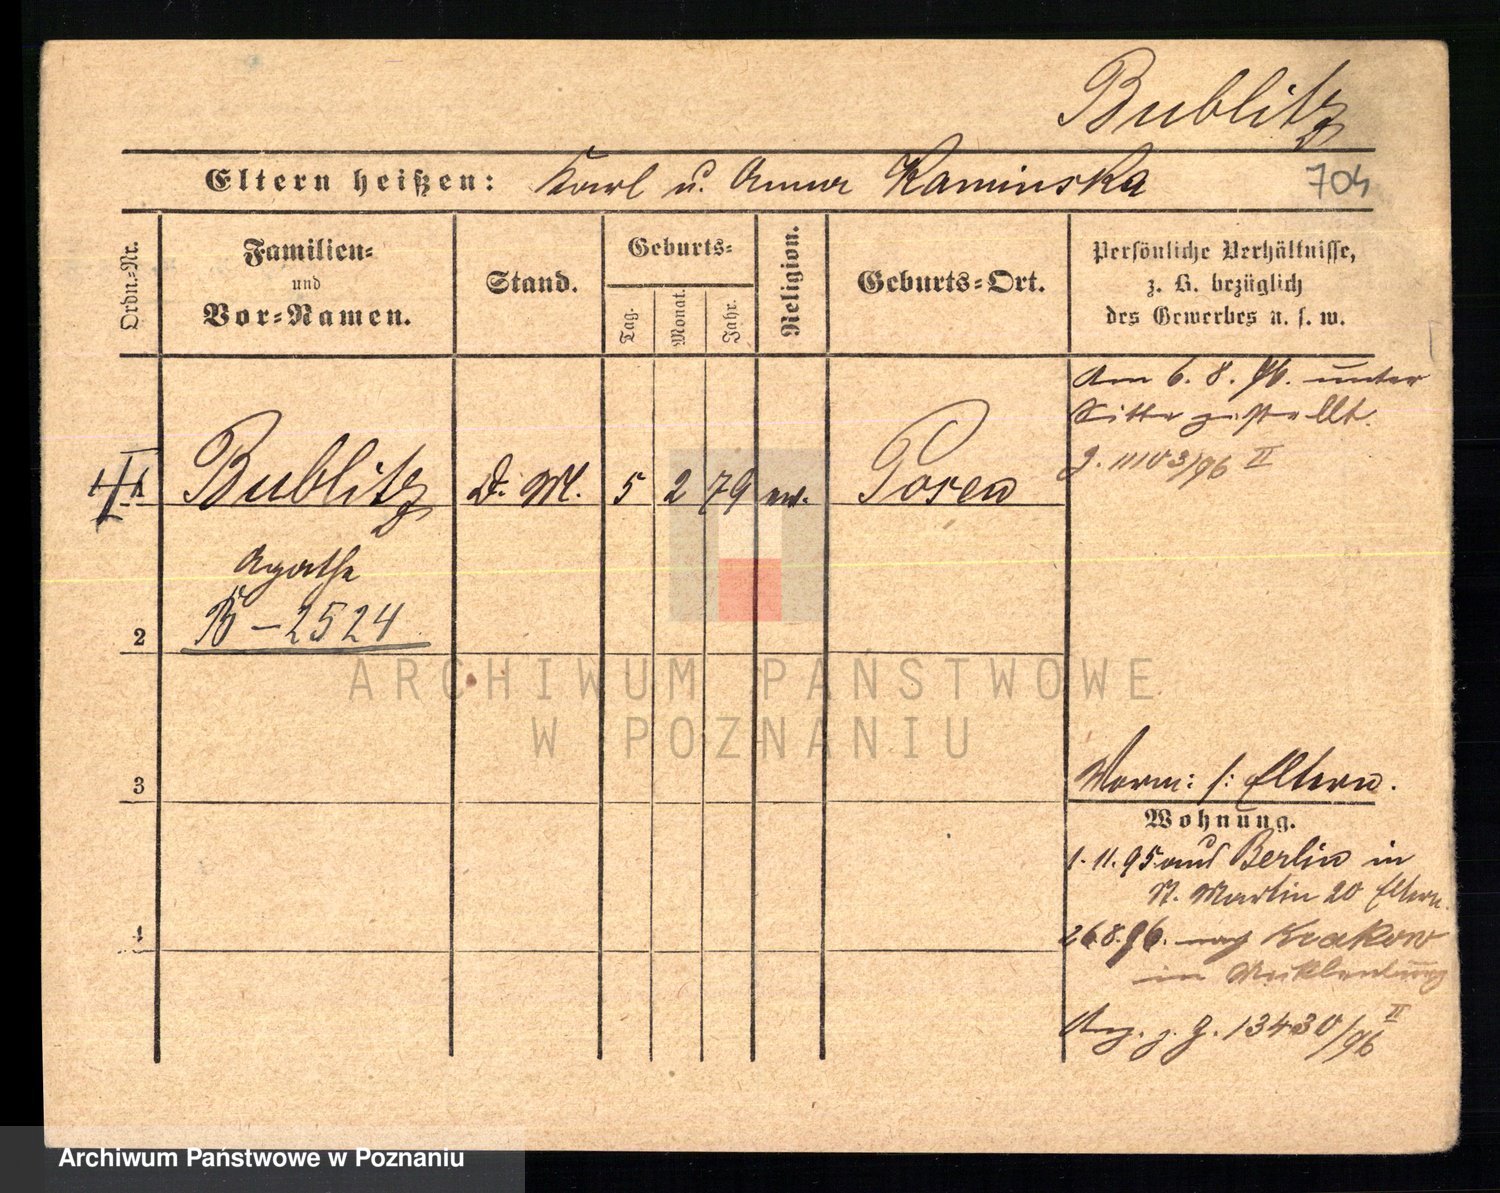 Bublitz
Eltern heißen: Karl u. Anna Kaminska
704
Ordn.-Nr.
Familien-
und
Vor-Namen.
Stand.
Geburts-
Tag.
Monat.
Jahr.
Religion.
Geburts-Ort.
Persönliche Verhältnisse,
z. B. bezüglich
des Gewerbes u. s. w.
Am 6. 8. 96. unter
Sitte gestellt.
J. 11103/96 II
II
Bublitz D. M. 5 2 79 ev. Posen
Agathe
B - 2524
2
ARCHIWUM PAŃSTWOWE
W POZNANIU
3
4
Vorm: s: Eltern.
Wohnung.
1. 11. 95 aus Berlin in
St. Martin 20 Eltern.
26.8.96. nach Krakow
in Mecklenburg
Anz. z. J. 13430/96 II
Archiwum Państwowe w Poznaniu